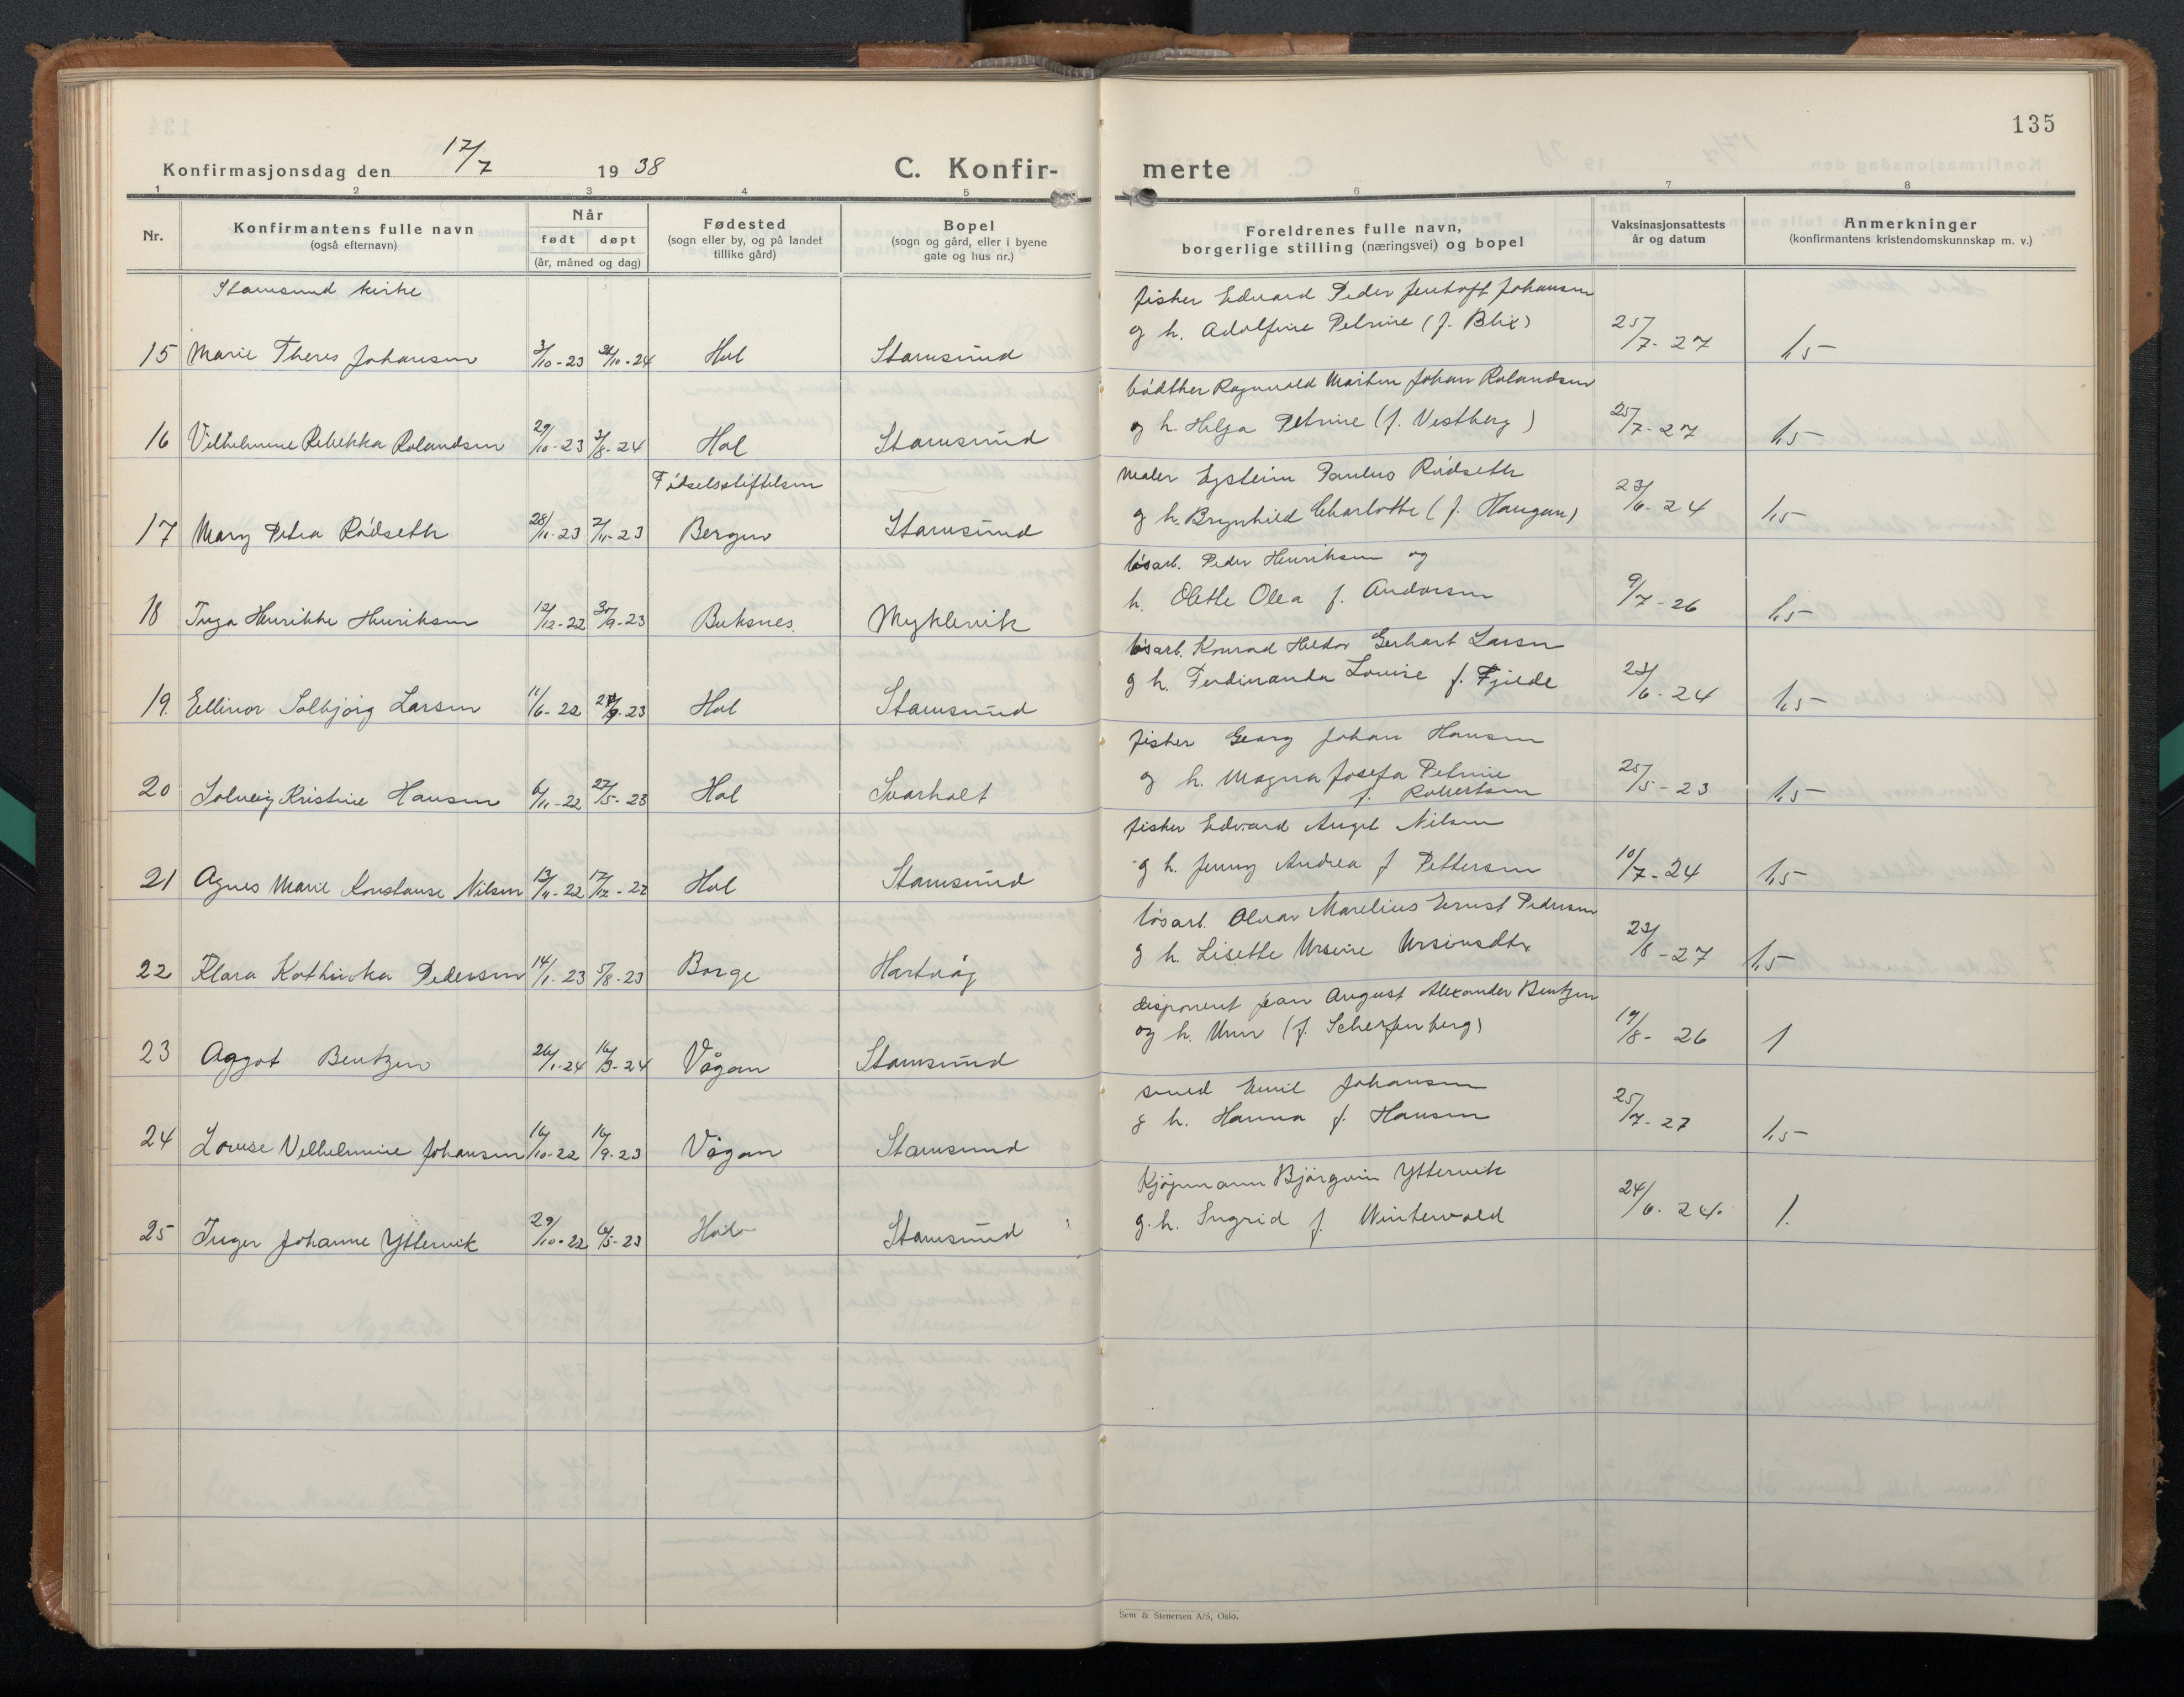 135
Konfirmasjonsdag den 17/7 1938 C. Konfirmerte
1 2 3 4 5 6 7 8
Nr. Konfirmantens fulle navn (også efternavn) Når født døpt (år, måned og dag) Fødested (sogn eller by, og på landet tillike gård) Bopel (sogn og gård, eller i byene gate og hus nr.) Foreldrenes fulle navn, borgerlige stilling (næringsvei) og bopel Vaksinasjonsattests år og datum Anmerkninger (konfirmantens kristendomskunnskap m. v.)
Stamsund kirke
fisker Edvard Peder Jentoft Johansen
15 Marie Theres Johansen 3/10-23 /10-24 Hol Stamsund og h. Adolfine Petrine (f. Blix) 25/7-27 1,5
bödker Ragnvald Martin Johan Rolandsen
16 Vilhelmine Rebekka Rolandsen 29/10-23 3/8-24 Hol Stamsund og h. Helga Petrine (f. Vestberg) 25/7-27 1,5
Födselsstiftelsen maler Eystein Paulus Rödseth
17 Mary Petra Rödseth 28/11-23 2/11-23 Bergen Stamsund og h. Brynhild Charlotte (f. Haugan) 23/6-24 1,5
lösarb. Peder Henriksen og
18 Inga Henrikke Henriksen 12/12-22 30/9-23 Buksnes. Myklevik h. Olette Olea f. Andorsen 9/7-26 1,5
lösarb. Konrad Hildor Gerhart Larsen
19. Ellinor Solbjörg Larsen 11/6-22 /9-23 Hol Stamsund og h. Ferdinanda Louise f. Fjelde 23/6-24 1,5
fisker Georg Johan Hansen
20 Solveig Kristine Hansen 6/11-22 27/5-23 Hol Svarholt og h. Magna Josefa Petrine f. Robertsen 25/5-23 1,5
fisker Edvard Angel Nilsen
21 Agnes Marie Konstanse Nilsen 13/11-22 17/12-22 Hol Stamsund og h. Jenny Andrea f Pettersen 10/7-24 1,5
lösarb. Olvar Marelius Ernst Pedersen
22 Klara Kathinka Pedersen 14/1-23 5/8-23 Borge Hartvåg og h. Lisette Ursine Ursinusdtr. 23/8-27 1,5
disponent Jean August Alexander Bentzen
23 Aggot Bentzen 26/1-24 16/3-24 Vågan Stamsund og h. Unn (f. Scherfenberg) 19/8-26 1
smed Emil Johansen
24 Louise Vilhelmine Johansen 16/10-22 16/9-23 Vågan Stamsund og h. Hanna f. Hansen 25/7-27 1,5
Kjöpmann Björgvin Yttervik
25 Inger Johanne Yttervik 29/10-22 6/5-23 Hol Stamsund og h. Ingrid f. Wintervold 24/6-24. 1.
Sem & Stenersen A/S, Oslo.